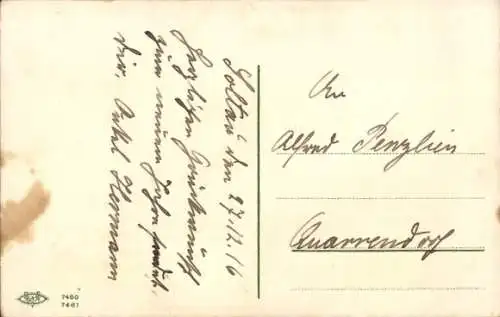 Soltau den 27.12.16
Herzlichen Glückwunsch
zum neuen Jahre sendet
dir Onkel Hermann
An
Alfred Penzlien
Quarrendorf
7460
7461